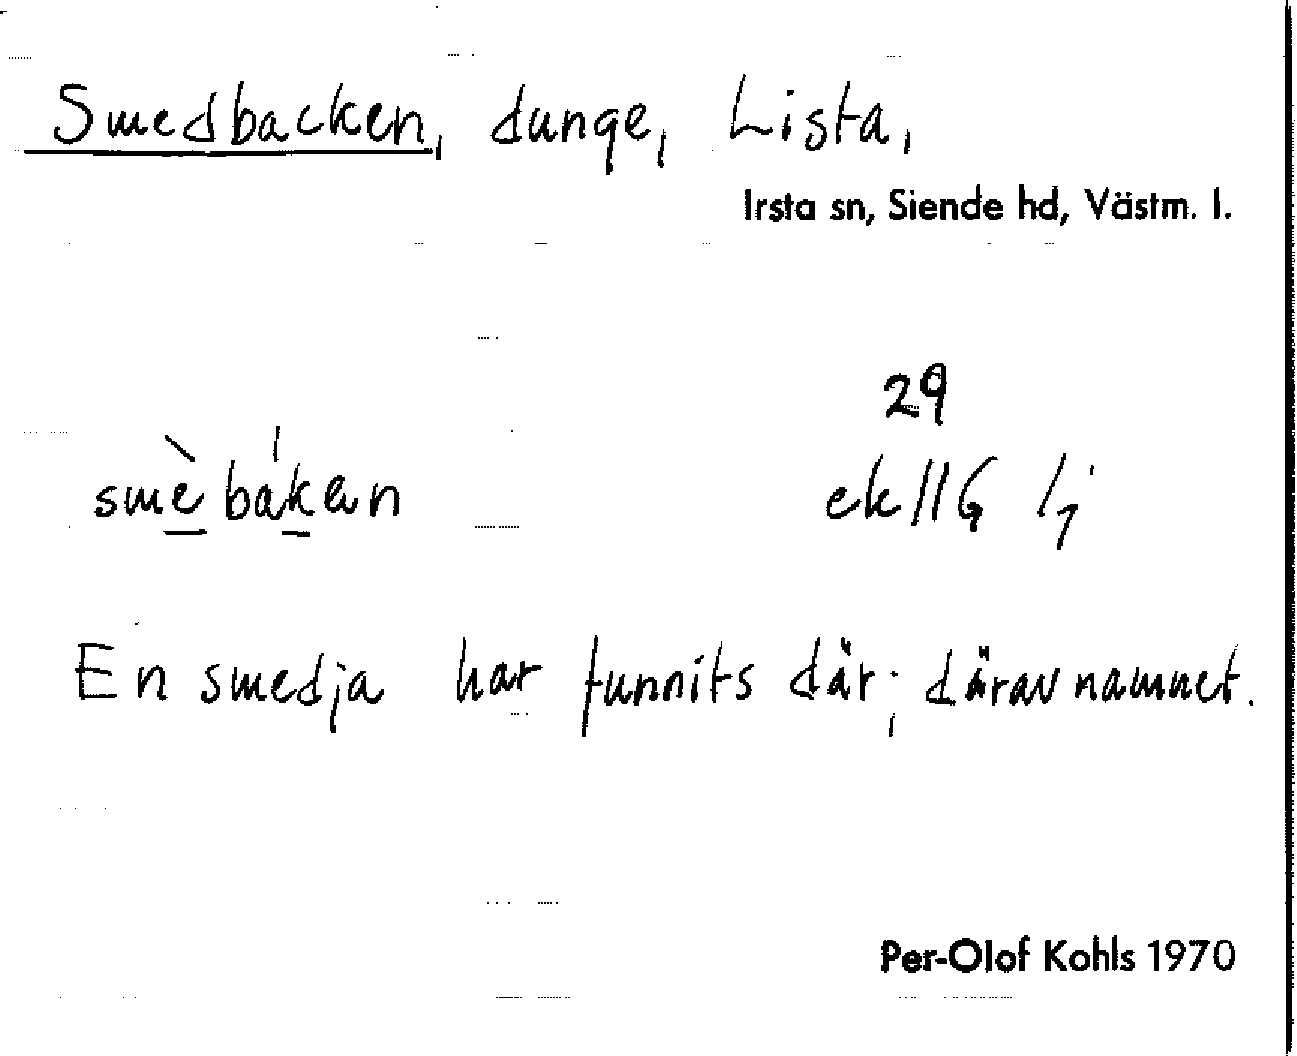 Smedbacken, dunge, Lista,
Irsta sn, Siende hd, Västm. l.
29
smè bákan
ek 11G
En smedja har funnits där; därav namnet.
Per-Olof Kohls 1970